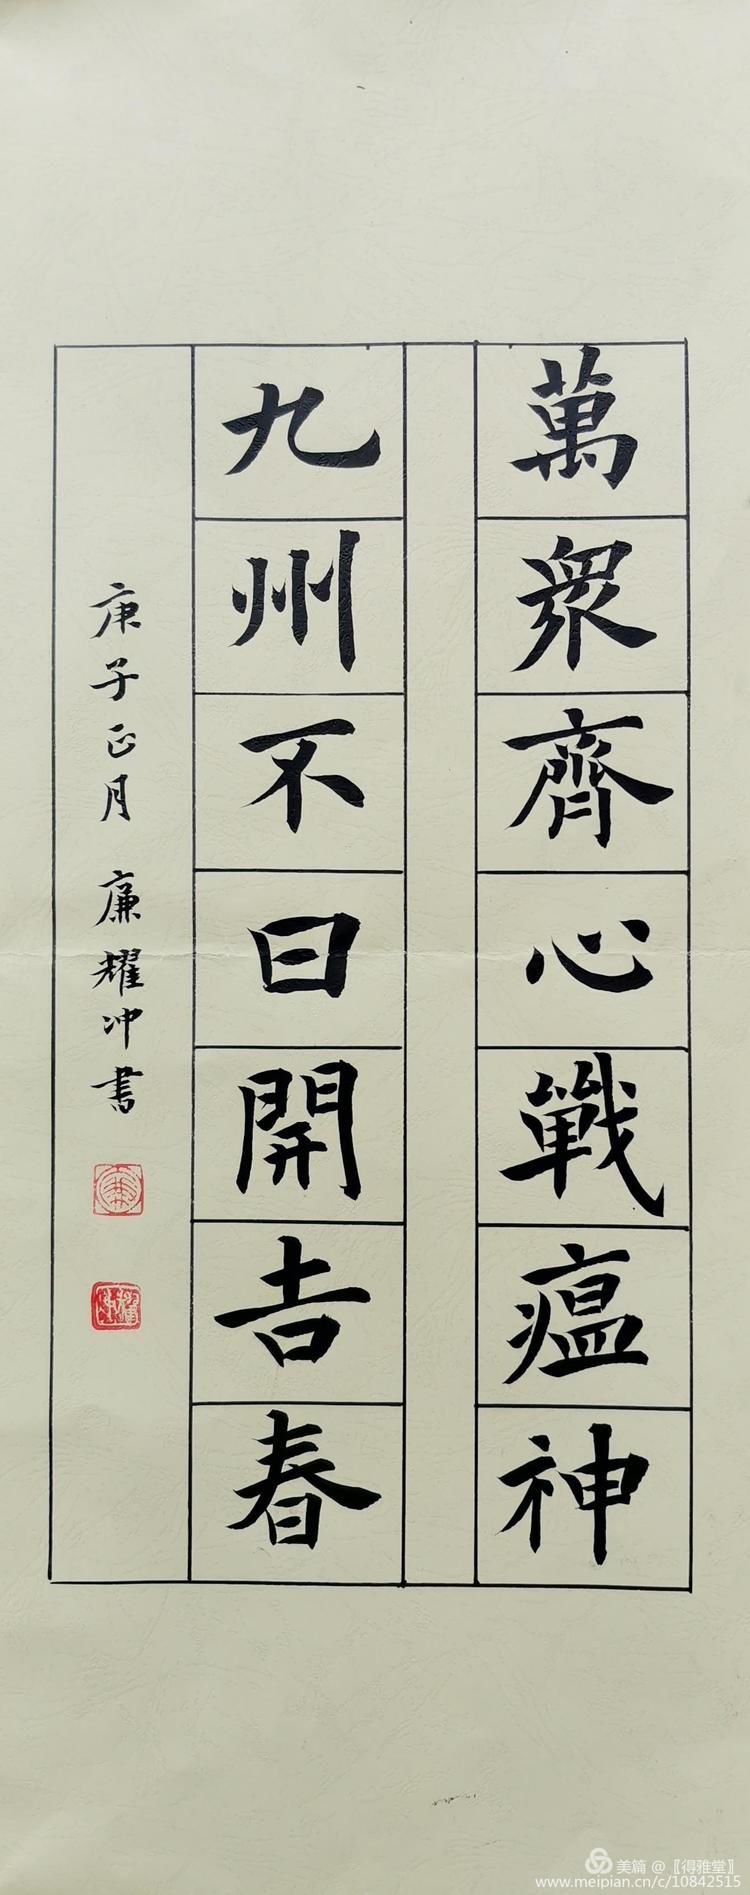 萬衆齊心戰瘟神
九州不日開吉春
庚子正月 廉耀冲書
美篇 @〖得雅堂〗
www.meipian.cn/c/10842515